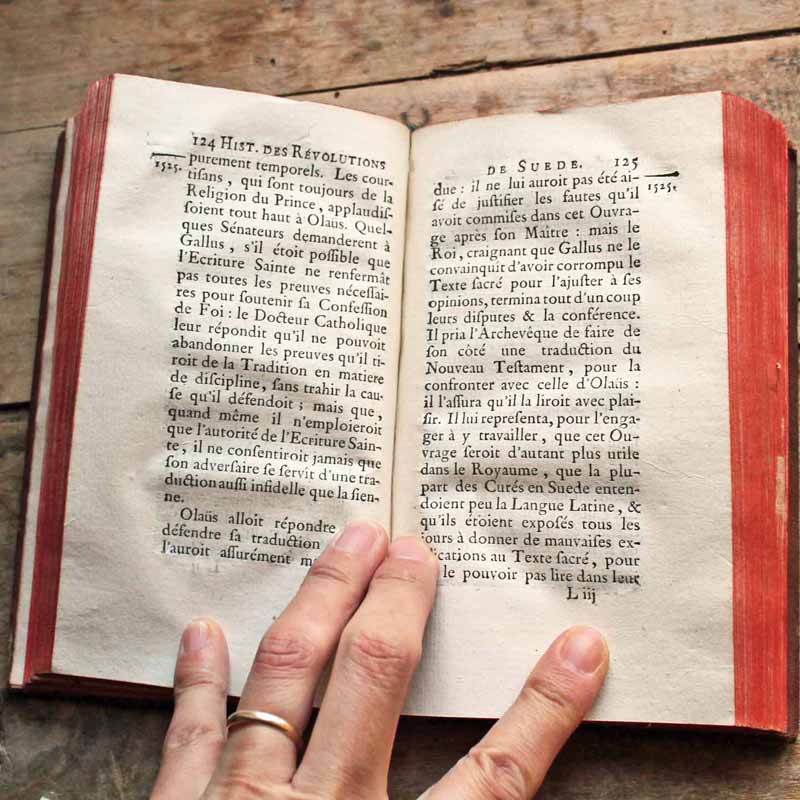 124 HIST. DES RÉVOLUTIONS
1525.
purement temporels. Les cour-
tiſans, qui ſont toujours de la
Religion du Prince, applaudiſ-
ſoient tout haut à Olaüs. Quel-
ques Sénateurs demanderent à
Gallus, s'il étoit poſſible que
l'Ecriture Sainte ne renfermât
pas toutes les preuves néceſſai-
res pour soutenir ſa Confeſſion
de Foi : le Docteur Catholique
leur répondit qu'il ne pouvoit
abandonner les preuves qu'il ti-
roit de la Tradition en matiere
de diſcipline, ſans trahir la cau-
ſe qu'il défendoit ; mais que,
quand même il n'emploieroit
que l'autorité de l'Ecriture Sain-
te, il ne conſentiroit jamais que
ſon adverſaire ſe ſervit d'une tra-
duction auſſi infidelle que la ſien-
ne.
Olaüs alloit répondre
défendre ſa traduction
l'auroit aſſurément
DE SUEDE. 125
1525.
due : il ne lui auroit pas été ai-
ſé de juſtifier les fautes qu'il
avoit commiſes dans cet Ouvra-
ge après ſon Maître : mais le
Roi, craignant que Gallus ne le
convainquit d'avoir corrompu le
Texte ſacré pour l'ajuſter à ſes
opinions, termina tout d'un coup
leurs diſputes & la conférence.
Il pria l'Archevêque de faire de
ſon côté une traduction du
Nouveau Teſtament, pour la
confronter avec celle d'Olaüs :
il l'aſſura qu'il la liroit avec plai-
ſir. Il lui repreſenta, pour l'enga-
ger à y travailler, que cet Ou-
vrage ſeroit d'autant plus utile
dans le Royaume, que la plu-
part des Curés en Suede enten-
doient peu la Langue Latine, &
qu'ils étoient expoſés tous les
jours à donner de mauvaiſes ex-
plications au Texte ſacré, pour
le pouvoir pas lire dans leur
L iij